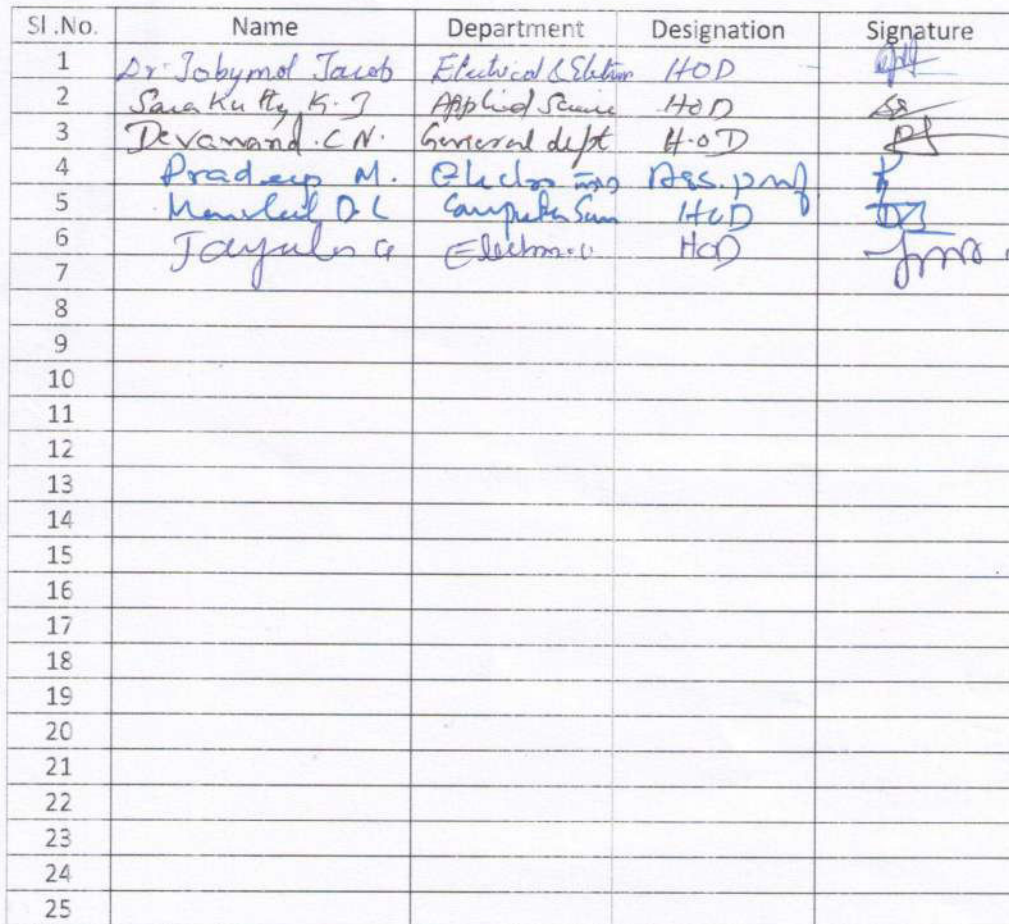 Sl .No. Name Department Designation Signature
1 Dr. Jobymol Jacob Electrical & HOD
2 Sarakutty K. J Applied Science HOD
3 Devanand . C N. General dept H.O D
4 Pradeep M. Ass. prof
5 D. L Computer HOD
6 G HOD
7
8
9
10
11
12
13
14
15
16
17
18
19
20
21
22
23
24
25